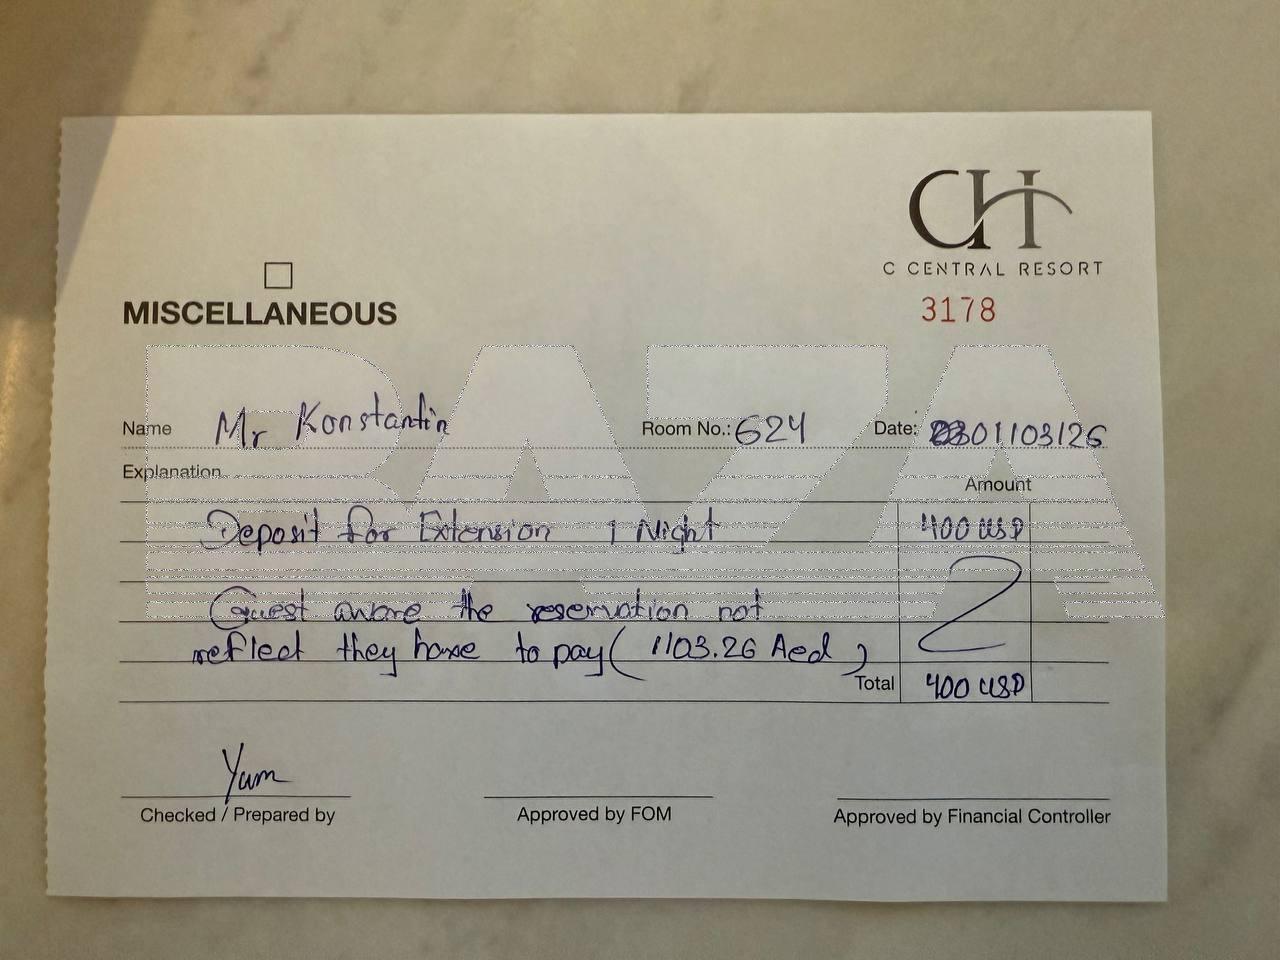 CH
C CENTRAL RESORT
MISCELLANEOUS
3178
BAZA
Name Mr Konstantin Room No.: 624 Date: 01/03/26
Explanation Amount
Deposit for Extension 1 Night 400 USD
Guest aware the reservation not
reflect they have to pay ( 1103.26 Aed )
Total 400 USD
Yum
Checked / Prepared by Approved by FOM Approved by Financial Controller